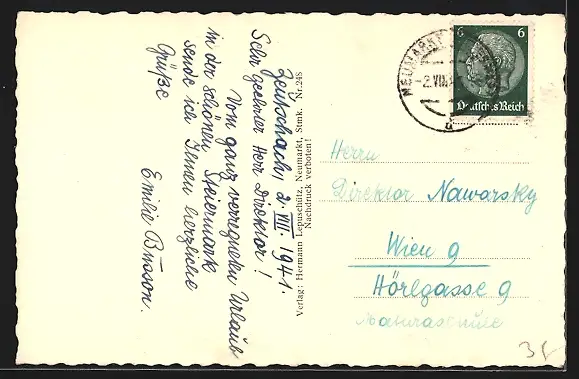 Zeutschach, 2. VIII. 1941.
Sehr geehrter Herr Direktor!
Vom ganz verregneten Urlaub
in der schönen Steiermark
sende ich Ihnen herzliche
Grüße
Emilie
Verlag: Hermann Lepuschütz, Neumarkt, Stmk. Nr. 248
Nachdruck verboten!
6 6
Deutsches Reich
NEUMARKT
-2.VIII.
d
Herrn
Direktor Nawarsky
Wien 9
Hörlgasse 9
Maturaschule